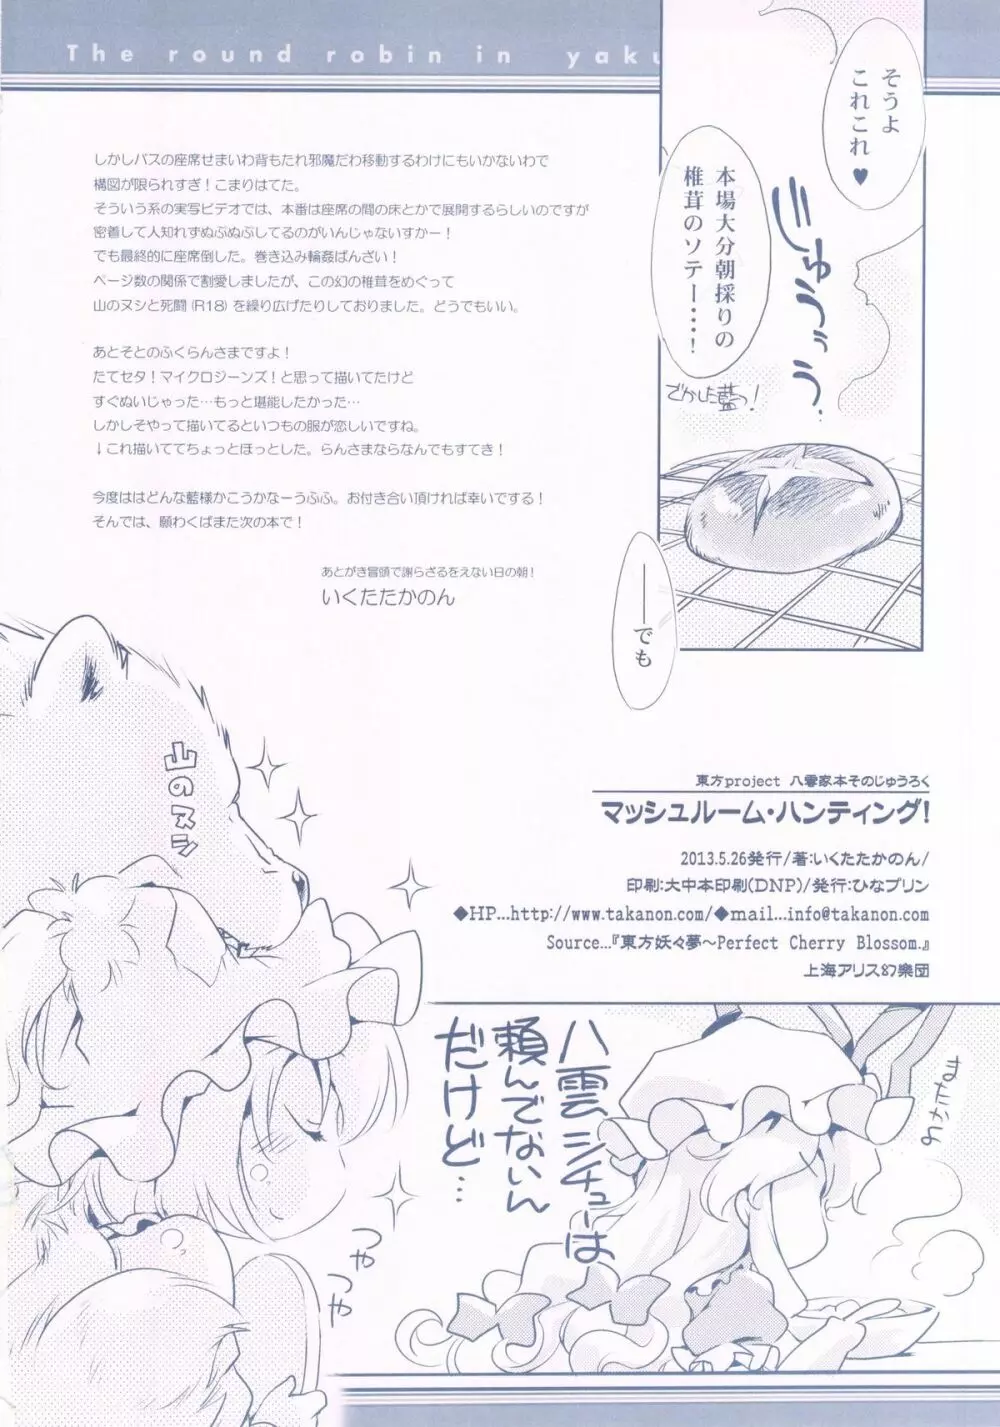 The round robin in yaku
そうよ
これこれ♥
本場大分朝採りの
椎茸のソテー‥‥!
じゅうぅっ…
でかした藍っ!
――でも
しかしバスの座席せまいわ背もたれ邪魔だわ移動するわけにもいかないわで
構図が限られすぎ!こまりはてた。
そういう系の実写ビデオでは、本番は座席の間の床とかで展開するらしいのですが
密着して人知れずぬぷぬぷしてるのがいんじゃないすかー!
でも最終的に座席倒した。巻き込み輪姦ばんざい!
ページ数の関係で割愛しましたが、この幻の椎茸をめぐって
山のヌシと死闘(R18)を繰り広げたりしておりました。どうでもいい。
あとそとのふくらんさまですよ!
たてセタ!マイクロジーンズ!と思って描いてたけど
すぐぬいじゃった…もっと堪能したかった…
しかしそやって描いてるといつもの服が恋しいですね。
↓これ描いててちょっとほっとした。らんさまならなんでもすてき!
今度ははどんな藍様かこうかなーうふふ。お付き合い頂ければ幸いでする!
そんでは、願わくばまた次の本で!
あとがき冒頭で謝らざるをえない日の朝!
いくたたかのん
山のヌシ
東方project 八雲家本そのじゅうろく
マッシュルーム・ハンティング!
2013.5.26発行/著:いくたたかのん/
印刷:大中本印刷(DNP)/発行:ひなプリン
◆HP...http://www.takanon.com/◆mail...info@takanon.com
Source...『東方妖々夢~Perfect Cherry Blossom.』
上海アリス幻樂団
八雲シチューは
頼んでないん
だけど…
つや
つや